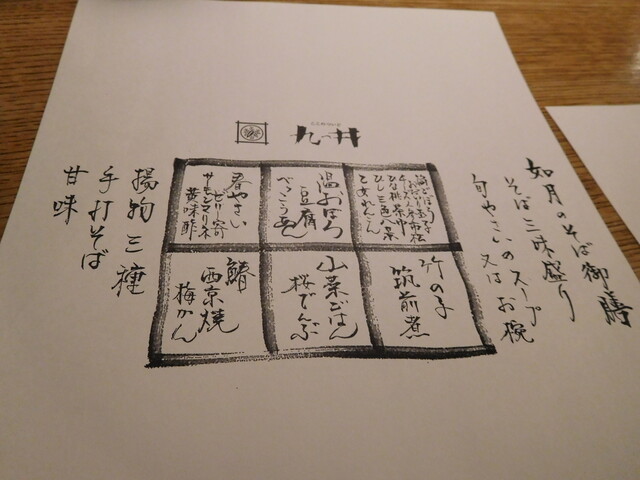 九つ井
如月のそば御膳
そば三味盛り
旬やさいのスープ
又は お椀
ひし三色八景
乙女れんこん
温おぼろ
豆腐
べっこうあん
春やさい
ゼリー寄
サーモンマリネ
黄味酢
竹の子
筑前煮
山菜ごはん
桜でんぶ
鰆
西京焼
梅かん
揚物三種
手打そば
甘味